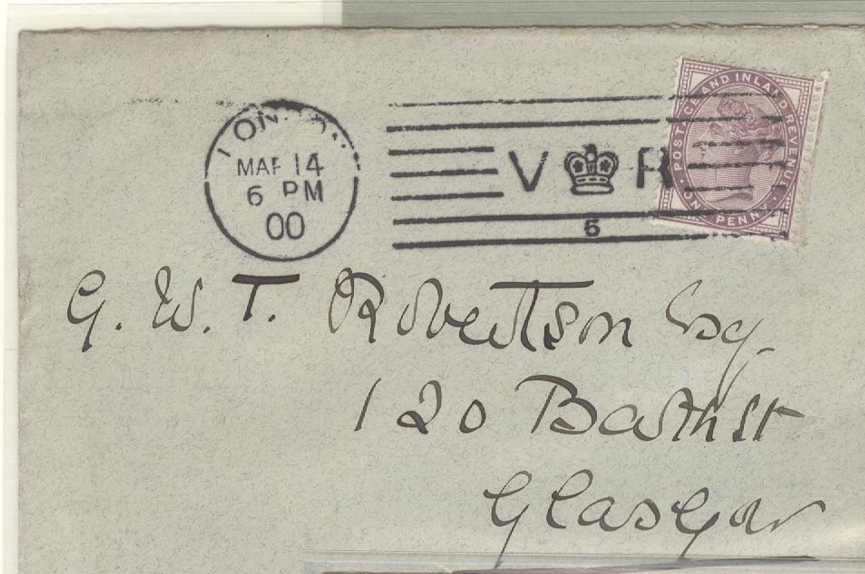 LONDON
MAR 14
6 PM
00
V R
5
POSTAGE AND INLAND REVENUE
ONE PENNY
G. W. T. Robertson Esq.
120 Bath St
Glasgow